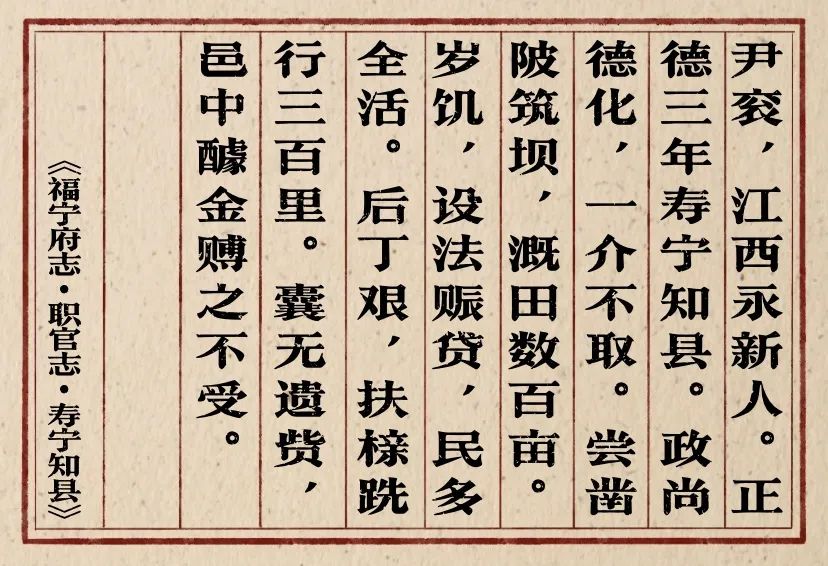 尹衮，江西永新人。正
德三年寿宁知县。政尚
德化，一介不取。尝凿
陂筑坝，溉田数百亩。
岁饥，设法赈贷，民多
全活。后丁艰，扶榇跣
行三百里。囊无遗赀，
邑中醵金赙之不受。
《福宁府志·职官志·寿宁知县》